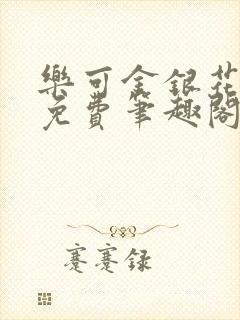 樂可金銀花
免費筆趣閣
蹇蹇録